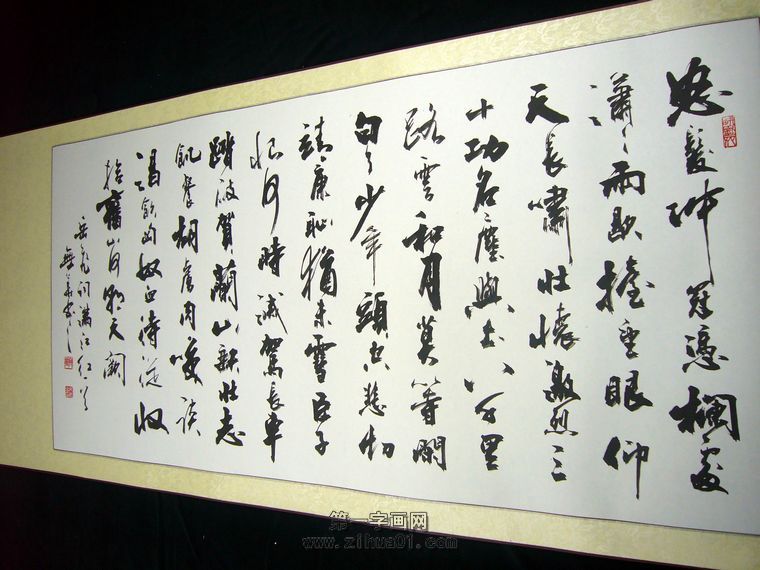 怒髮冲冠憑欄處
瀟々雨歇擡望眼仰
天長嘯壯懷激烈三
十功名塵與土八千里
路雲和月莫等閒
白了少年頭空悲切
靖康恥猶未雪臣子
恨何時滅駕長車
踏破賀蘭山缺壮志
飢餐胡虜肉笑談
渴飲匈奴血待從收
拾舊山河朝天闕
岳飛詞滿江紅一首
第一字画网
www.zihua01.com